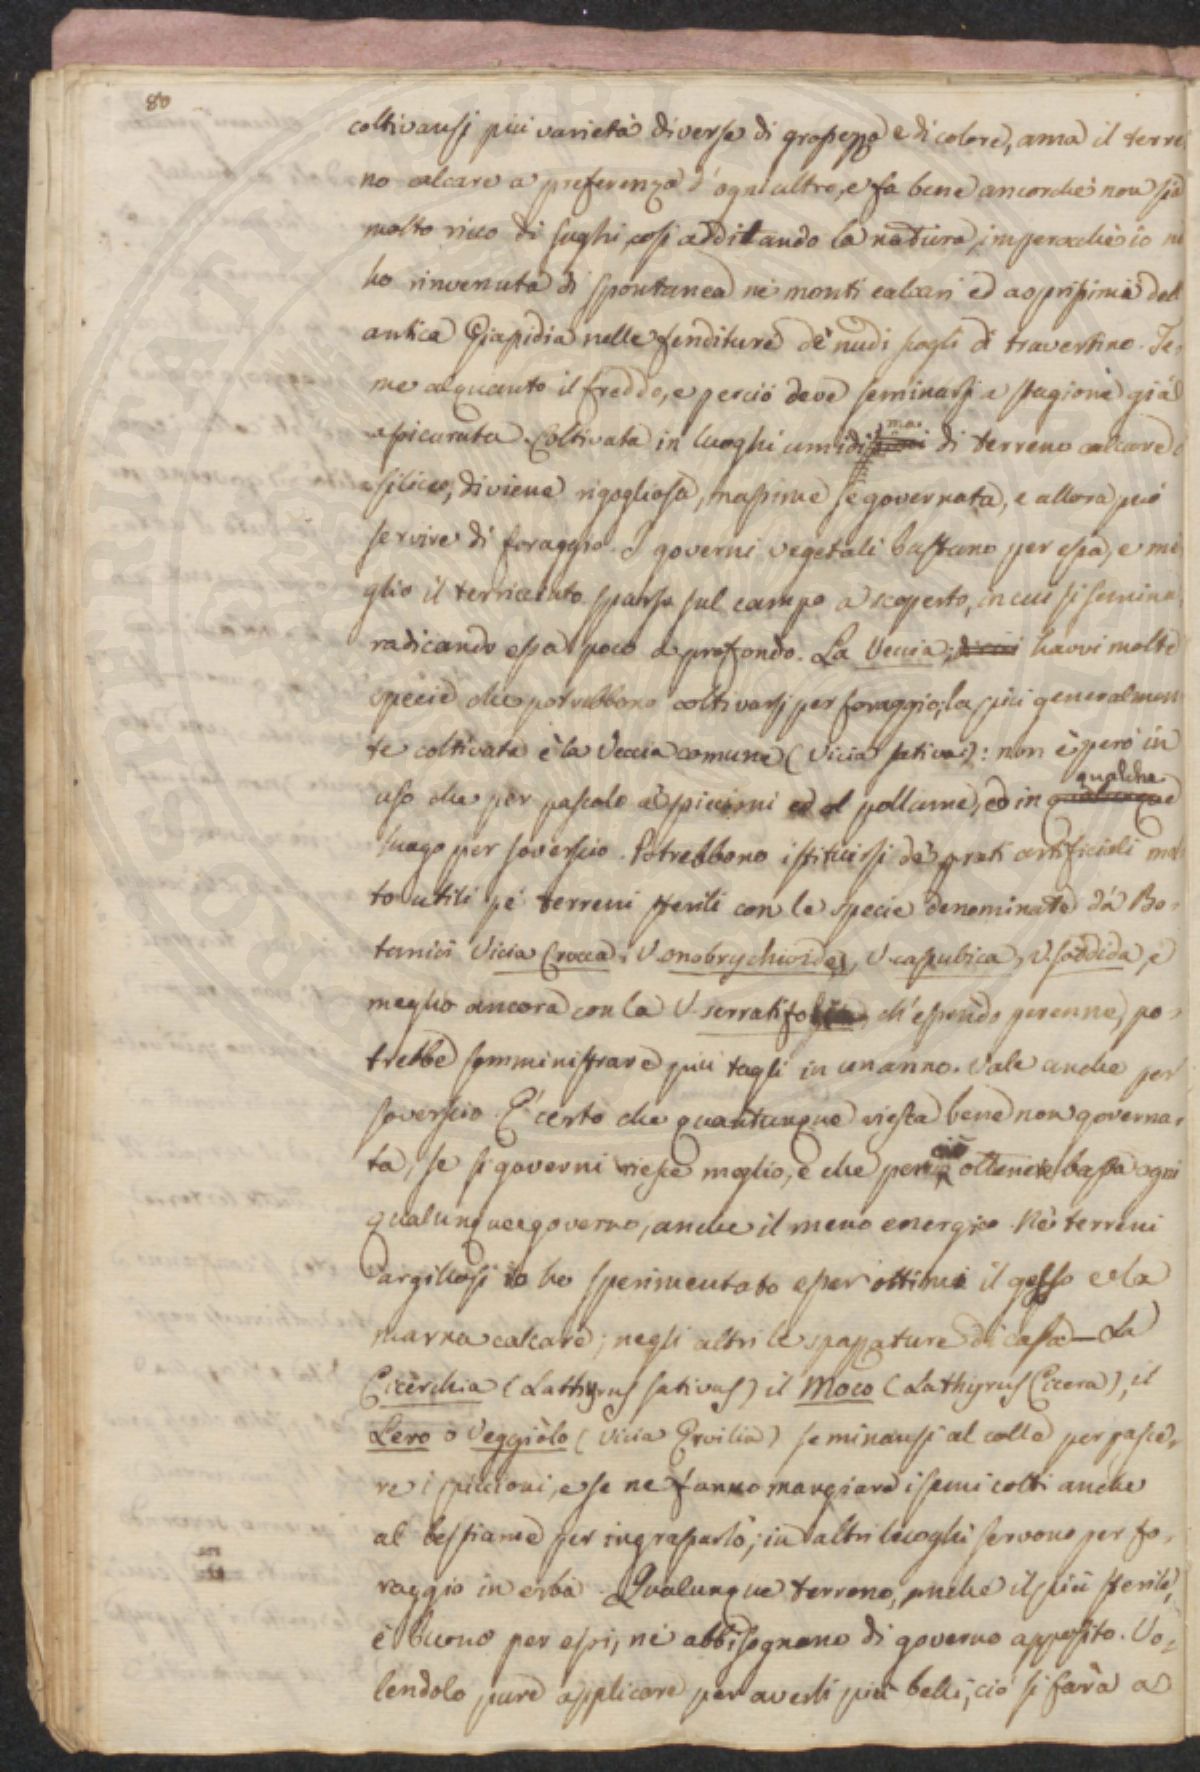 80
coltivansi più varietà diverse di grossezza e di colore, ama il terre
no calcare a preferenza d'ogni altro, e fa bene ancorchè non sia
molto ricco di sughi, così additando la natura, imperocchè io
ho rinvenuta di spontanea nei monti calcari ed asprissimi del
antica Giapidia nelle fenditure de' nudi scogli di travertino. Te-
me alquanto il freddo, e perciò deve seminarsi a stagione già
assicurata. Coltivata in luoghi umidi, ma di terreno calcare
siliceo, diviene rigogliosa, massime se governata, e allora può
servire di foraggio. I governi vegetali bastano per essa, e me
glio il terricciato sparso sul campo a scoperto, in cui si semina,
radicando essa poco a profondo. La Veccia, havvi molte
specie che potrebbono coltivarsi per foraggio; la più generalmen
te coltivata è la Veccia comune (Vicia sativa): non è però in
uso che per pascolo ai piccioni ed al pollame, ed in qualche
luogo per soverscio. Potrebbono istituirsi de' prati artificiali mol
to utili pe' terreni sterili con le specie denominate da' Bo-
tanici Vicia Crocca, V. onobrychioides, V. cassubica, V. sordida, e
meglio ancora con la V. serratifolia, ch'essendo perenne, po-
trebbe somministrare più tagli in un anno. Vale anche per
soverscio. E' certo che quantunque riesca bene non governa-
ta, se si governi riesce meglio, e che per ciò ottenere basta ogni
qualunque governo, anche il meno energico. Nè terreni
argillosi io ho sperimentato esser ottimi il gesso e la
marna calcare; negli altri le spazzature di casa — La
Cicerchia (Lathyrus sativus) il Moco (Lathyrus Cicera), il
Lero o Veggiolo (Vicia Ervilia) seminansi al colle per pasce-
re i piccioni, e se ne fanno mangiare i semi cotti anche
al bestiame per ingrassarlo; in altri luoghi servono per fo-
raggio in erba. Qualunque terreno, anche il più sterile,
è buono per essi, nè abbisognano di governo apposito. Vo-
lendolo pure applicare per averli più belli, ciò si farà a